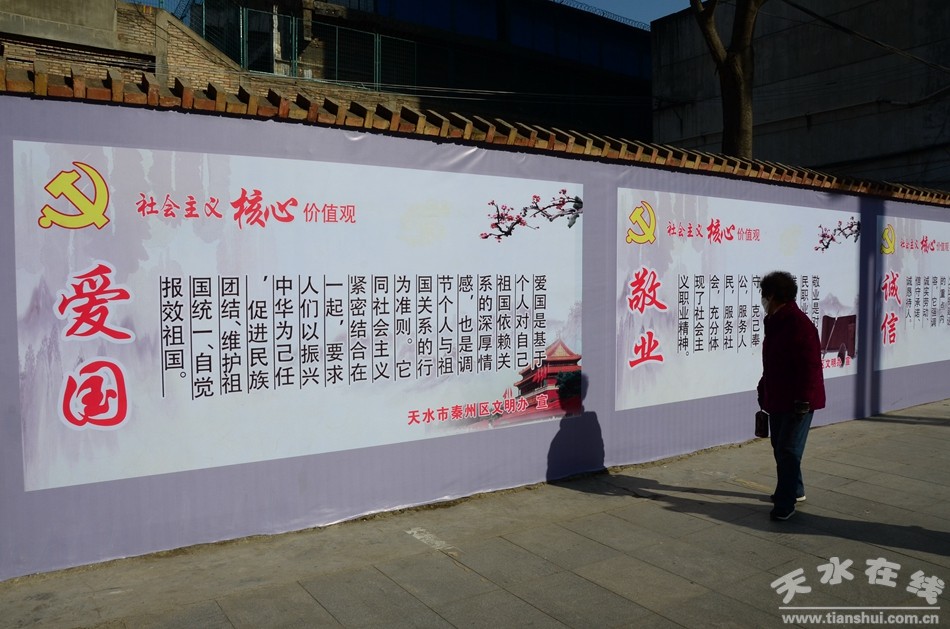 社会主义 核心 价值观
爱国
爱国是基于
个人对自己
祖国依赖关
系的深厚情
感，也是调
节个人与祖
国关系的行
为准则。它
同社会主义
紧密结合在
一起，要求
人们以振兴
中华为己任
，促进民族
团结、维护祖
国统一、自觉
报效祖国。
天水市秦州区文明办 宣
社会主义 核心 价值观
敬业
敬业是对
民职业
守，克己奉
公，服务人
民，服务社
会，充分体
现了社会主
义职业精神。
区文明办 宣
社会主义 核心
诚信
诚实劳动、
信守承诺、
诚恳待人
天水在线
www.tianshui.com.cn